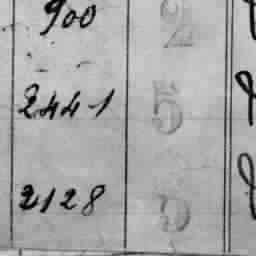 900 2
2441 5
2128 5